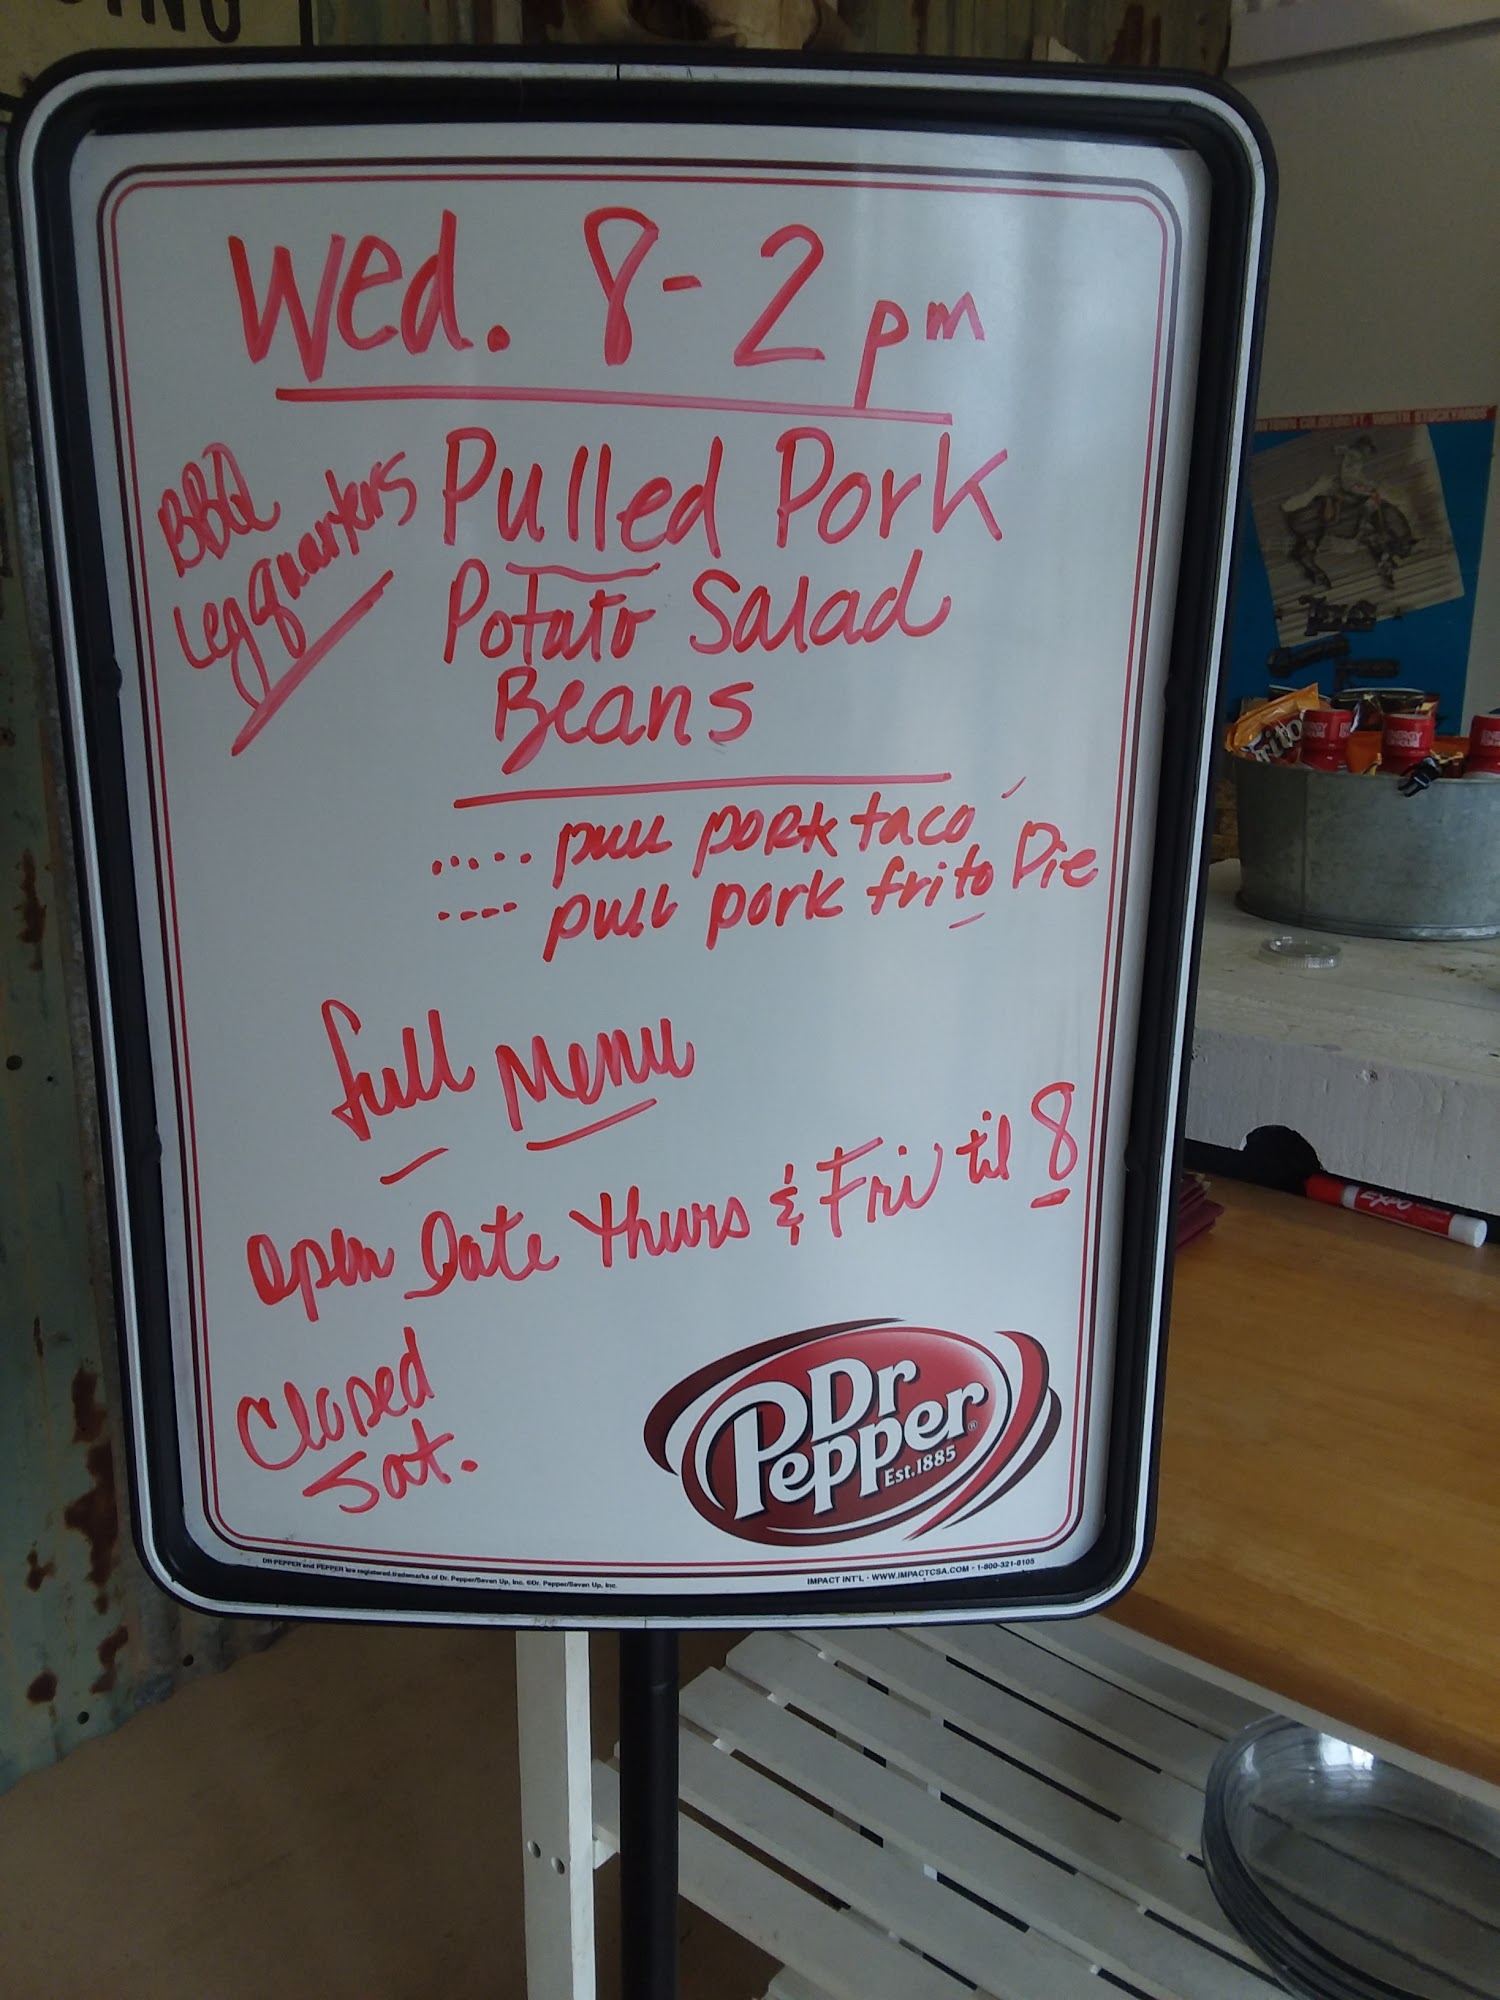 ING
Wed. 8-2 pm
BBQ
Leg quarters
Pulled Pork
Potato Salad
Beans
..... pull pork taco
.... pull pork frito Pie
full Menu
Open Late thurs & Fri til 8
Closed
Sat.
Dr
Pepper
Est.1885
DR PEPPER and PEPPER are registered trademarks of Dr. Pepper/Seven Up, Inc. ©Dr. Pepper/Seven Up, Inc.
IMPACT INT'L - WWW.IMPACTCSA.COM - 1-800-321-8105
FT. WORTH STOCKYARDS
Fritos
ENERGY
ENERGY
EXPO